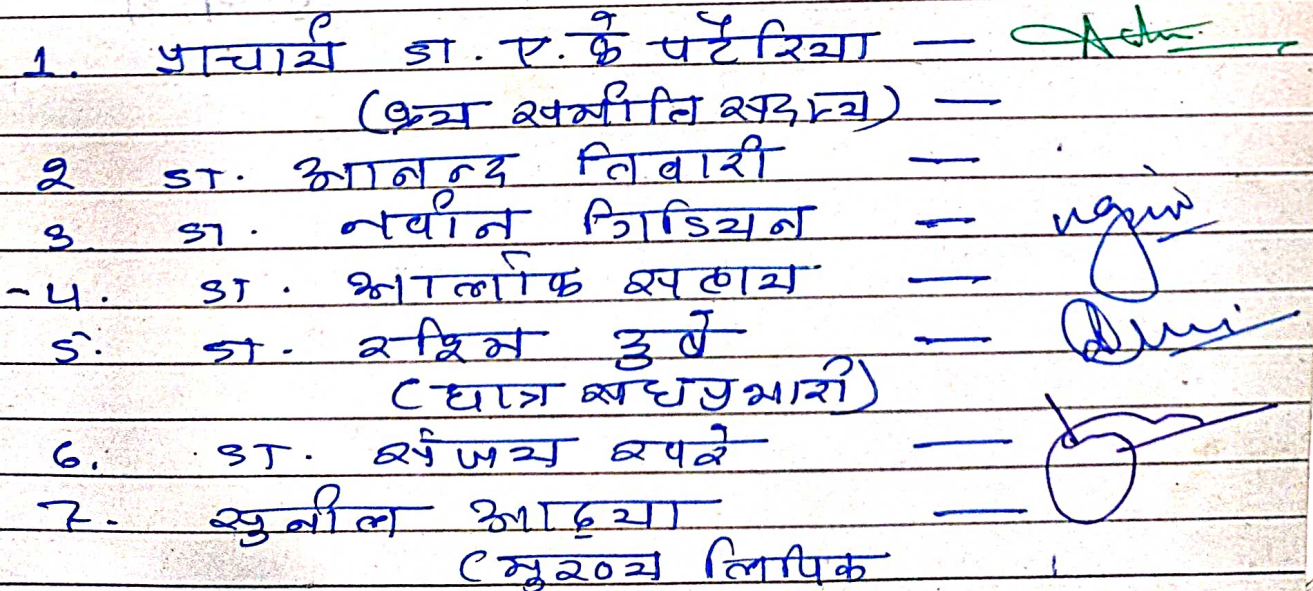 1. प्राचार्य डा. ए. के पटैरिया —
(क्रय समीति सदस्य) —
2 डा. आनन्द तिवारी —
3. डा. नवीन गिडियन —
4. डा. आलोक सहाय —
5. डा. रश्मि दुबे —
(छात्र संघ प्रभारी)
6. डा. संजय खरे —
7. सुनील आठ्या —
(मुख्य लिपिक